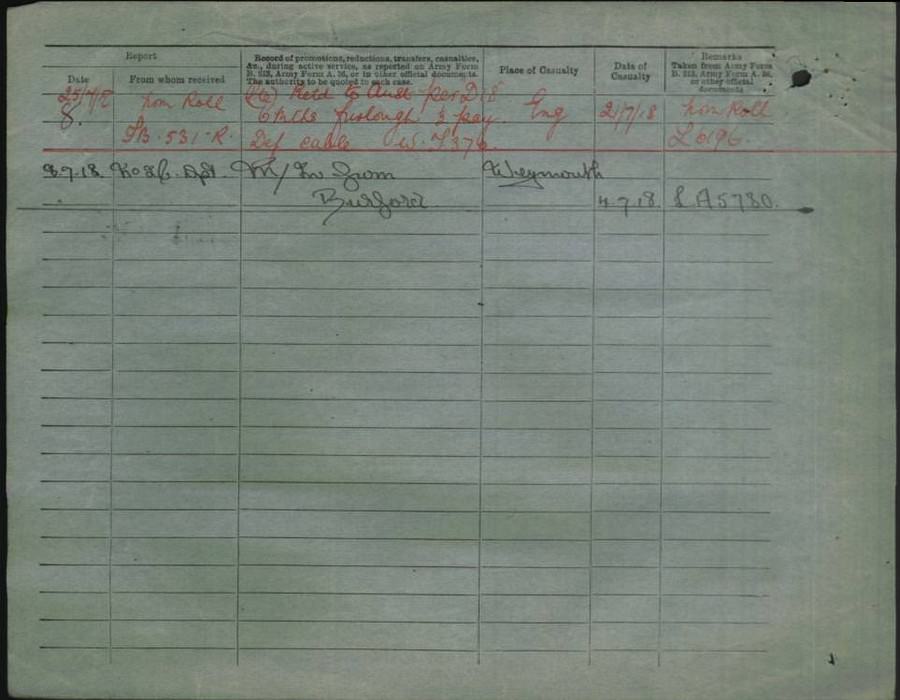 Report
Date
From whom received
Record of promotions, reductions, transfers, casualties,
&c., during active service, as reported on Army Form
B. 213, Army Form A. 36, or in other official documents.
The authority to be quoted in each case.
Place of Casualty
Date of
Casualty
Remarks
Taken from Army Form
B. 213, Army Form A. 36,
or other official
documents
25/7/18 Nom Roll Retd to Aust per D 18 Eng 21/7/18 Nom Roll
8. 6 mths furlough & pay L 0196.
IB. 531-R. Def cable W.
8.7.18. Dpt. M/ In from Weymouth
Burford 4.7.18. L A5780.